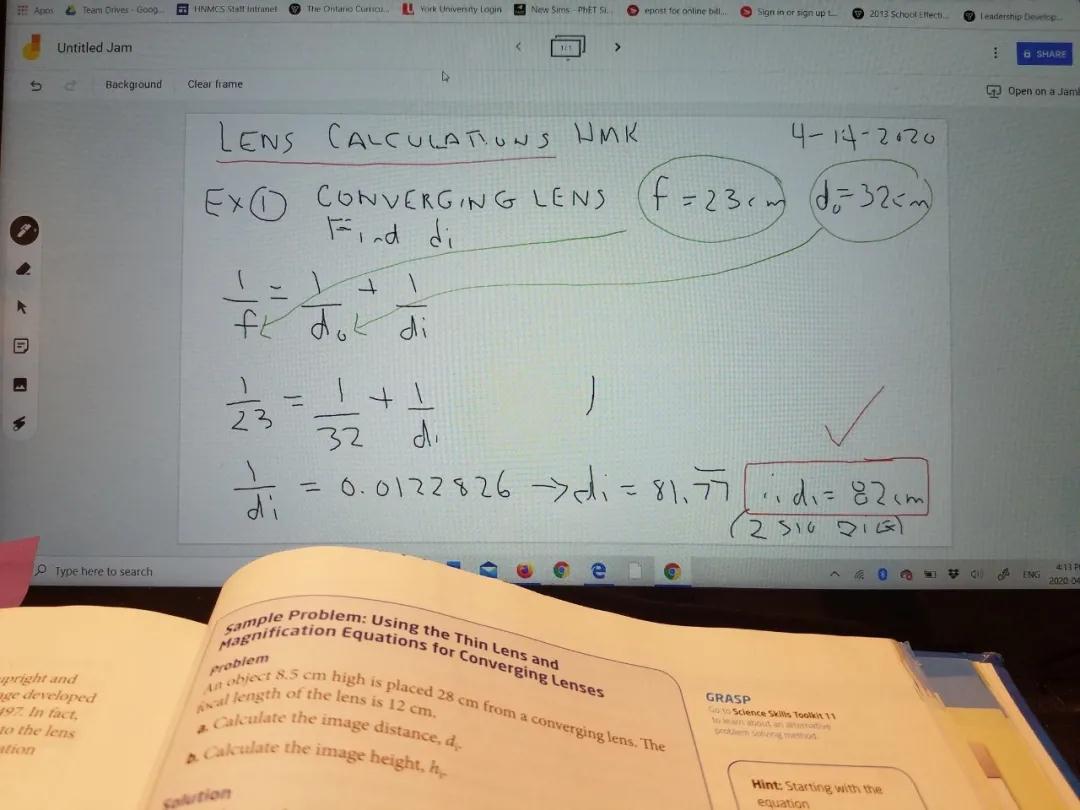 Apps Team Drives - Goog... HNMCS Staff Intranet The Ontario Curricu... York University Login New Sims - PhET Si... epost for online bill... Sign in or sign up t... 2013 School Effecti... Leadership Develop...
Untitled Jam
1/1
SHARE
Background Clear frame
Open on a Jam
LENS CALCULATIONS HMK 4-14-2020
EX① CONVERGING LENS f = 23cm do = 32cm
Find di
1/f = 1/do + 1/di
1/23 = 1/32 + 1/di
1/di = 0.0122826 → di = 81.77 ∴ di = 82cm
(2 SIG DIG)
Type here to search
ENG
4:13 P
2020-04
Sample Problem: Using the Thin Lens and
Magnification Equations for Converging Lenses
Problem
An object 8.5 cm high is placed 28 cm from a converging lens. The
focal length of the lens is 12 cm.
a. Calculate the image distance, di.
b. Calculate the image height, hi.
Solution
upright and
age developed
497. In fact,
to the lens
ation
GRASP
Go to Science Skills Toolkit 11
to learn about an alternative
problem solving method.
Hint: Starting with the
equation